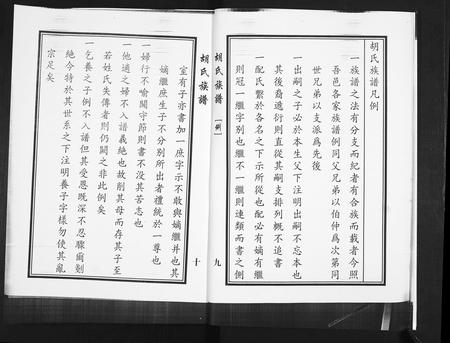 胡氏族譜凡例
一族譜之法有分支而紀者有合族而載者今照
吾邑各家族譜例同父兄弟以伯仲爲次第同
世兄弟以支派爲先後
一出嗣之子必於本生父下注明出嗣不忘本也
其後裔遞衍則直從其嗣支排列概不追書
一配氏繫於各名之下示所從也配必有嫡有繼
則冠一繼字別也繼不一繼則連類而書之側
胡氏族譜 [例] 九
胡氏族譜 十
室有子亦書加一庶字示不敢與嫡繼并也其
嫡繼庶生子不分別所出者禮統於一尊也
一婦行不喻閫守節則書不没其苦志也
一他適之婦不入譜義絶也故削其母而存其子至
若姓氏失傳者則仍闕之非此例矣
一乞養之子例不入譜但其受恩既深不忍驟爾剗
絶今特於其世系之下注明養子字樣勿使其亂
宗足矣